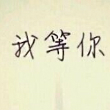 我等你